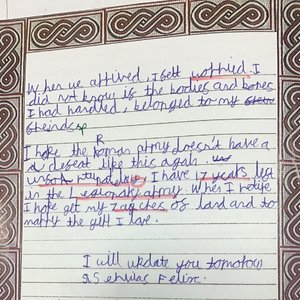 When we affived, I felt woffied. I
did not know if the bodies and bones
I had handled, belonged to my
ffeinds
I hope the Roman afmy doesn't have a
defeat like this again.
I have 17 yeafs left
in the Legionafy afmy. When I fetife
I hope get my 7 acfes of land and to
marry the gifl I love.
I will update you tomofow
Felix.